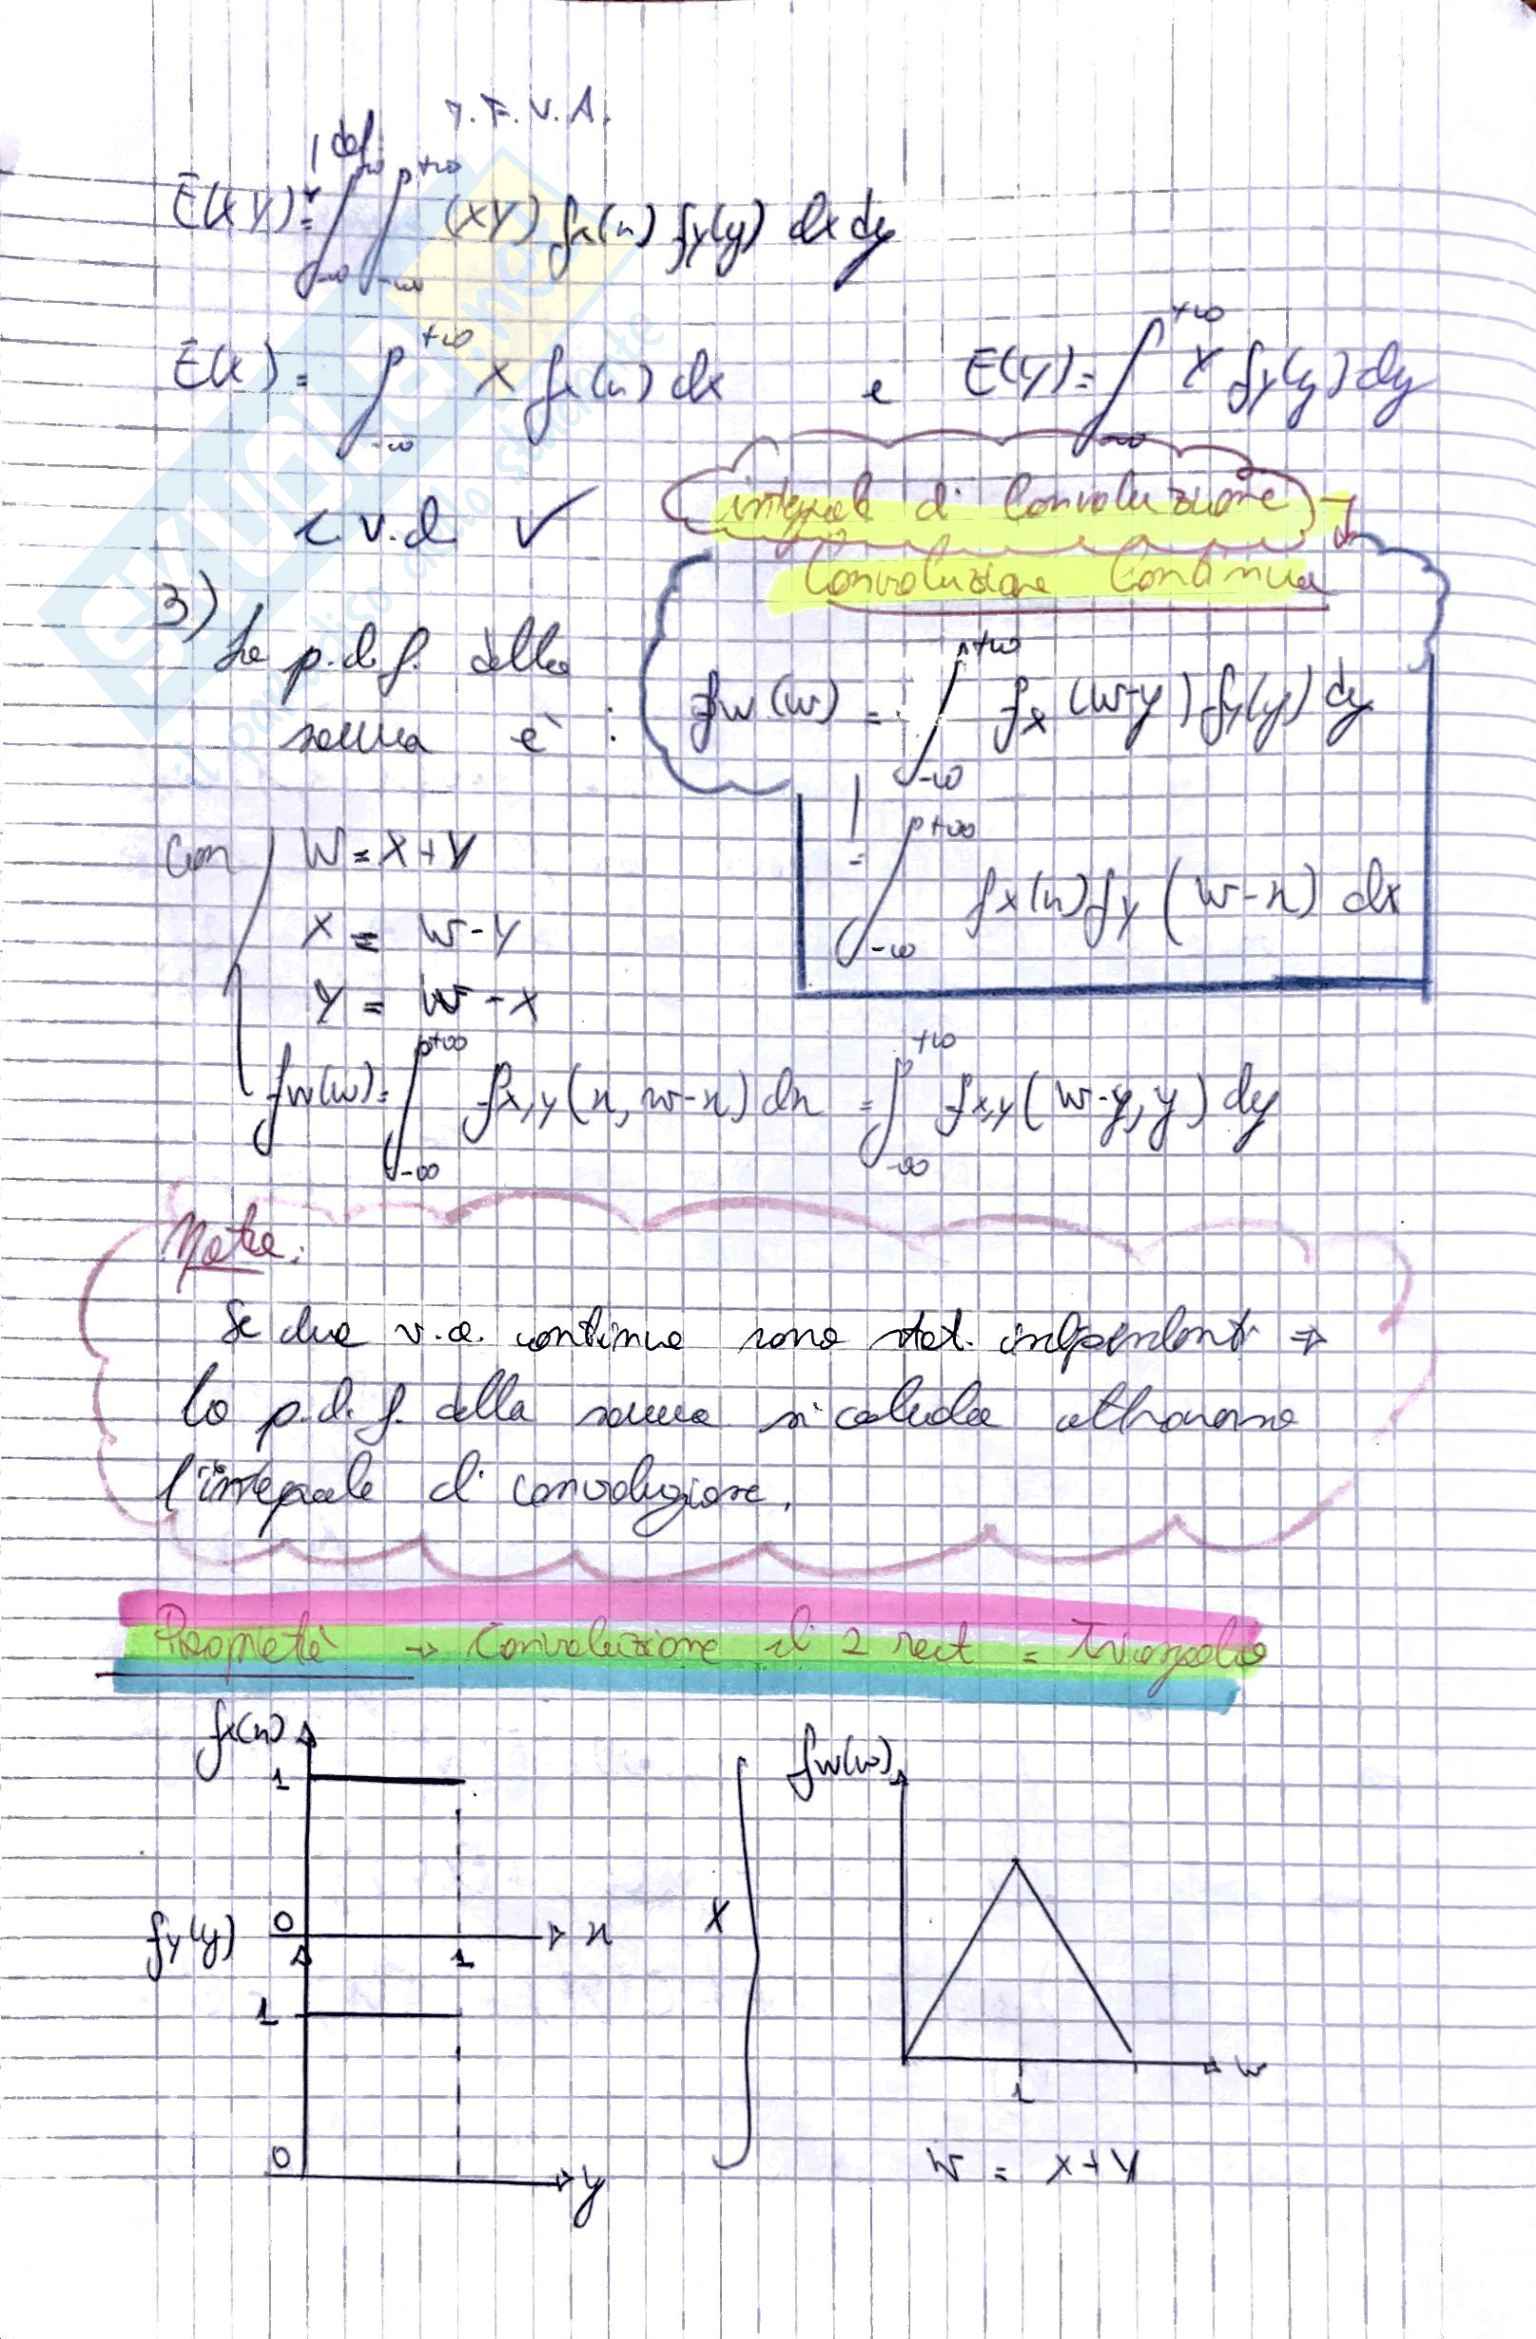 T.F.V.A.
def
E(XY) = ∫_{-∞}^{+∞} ∫_{-∞}^{+∞} (XY) fx(x) fy(y) dx dy
E(X) = ∫_{-∞}^{+∞} X fx(x) dx e E(Y) = ∫_{-∞}^{+∞} Y fy(y) dy
c.v.d. ✓
integrale di Convoluzione →
Convoluzione Continua
3) La p.d.f. della
somma è :
fw(w) = ∫_{-∞}^{+∞} fx(w-y) fy(y) dy
= ∫_{-∞}^{+∞} fx(x) fy(w-x) dx
Con W = X+Y
X = W-Y
Y = W-X
fw(w) = ∫_{-∞}^{+∞} fx,y(x, w-x) dx = ∫_{-∞}^{+∞} fx,y(w-y, y) dy
Nota:
Se due v.a. continue sono stat. indipendenti ⇒
la p.d.f. della somma si calcola attraverso
l'integrale di convoluzione.
Proprietà → Convoluzione di 2 rect = Triangolo
fx(x)
1
0
x
1
fy(y)
1
0
y
X
fw(w)
1
w
W = X+Y
SKUOLA.net
il paradiso dello studente